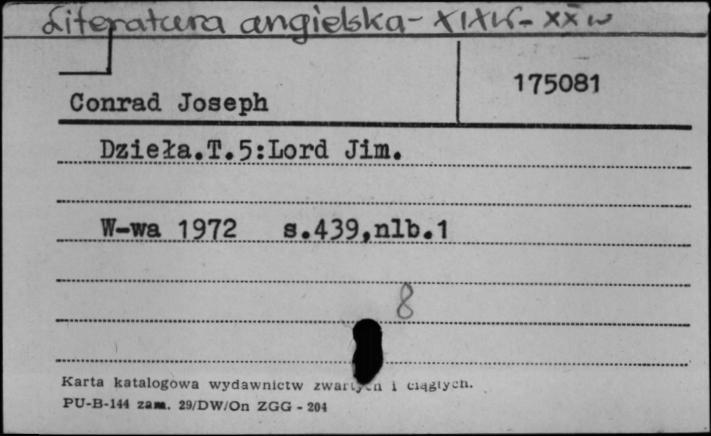 Literatura angielska - XIXw - XXw
175081
Conrad Joseph
Dzieła.T.5:Lord Jim.
W-wa 1972 s.439,nlb.1
8
Karta katalogowa wydawnictw zwartych i ciągłych.
PU-B-144 zam. 29/DW/On ZGG - 204